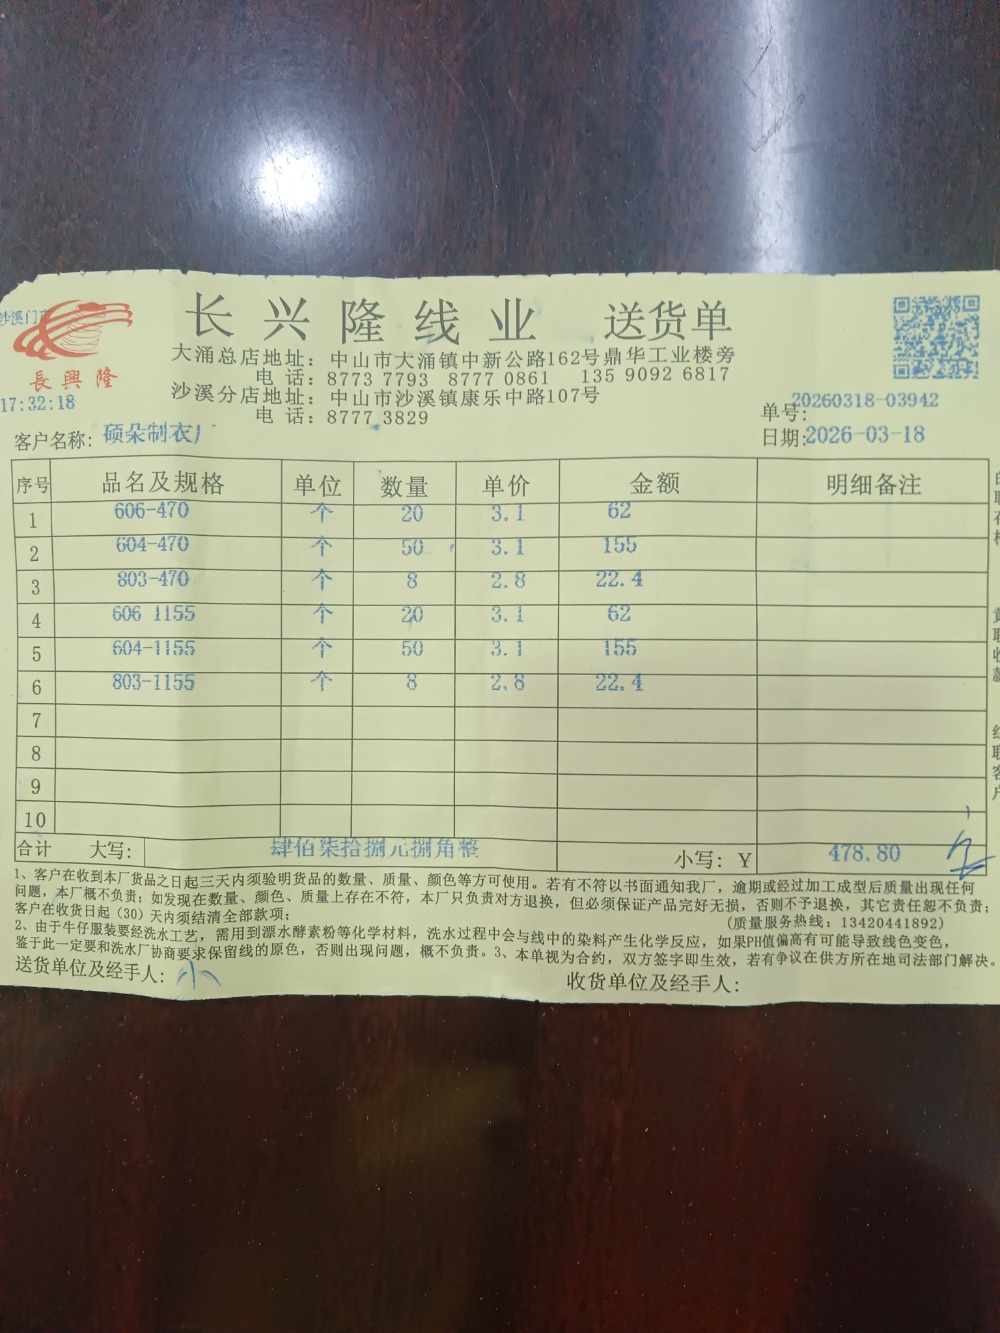 长兴隆线业 送货单
沙溪门市
長興隆
17:32:18
大涌总店地址：中山市大涌镇中新公路162号鼎华工业楼旁
电 话：8773 7793 8777 0861 135 9092 6817
沙溪分店地址：中山市沙溪镇康乐中路107号
电 话：8777 3829
单号：20260318-03942
客户名称：硕朵制衣厂
日期：2026-03-18
序号 品名及规格 单位 数量 单价 金额 明细备注
1 606-470 个 20 3.1 62
2 604-470 个 50 3.1 155
3 803-470 个 8 2.8 22.4
4 606 1155 个 20 3.1 62
5 604-1155 个 50 3.1 155
6 803-1155 个 8 2.8 22.4
7
8
9
10
合计 大写：肆佰柒拾捌元捌角整 小写：Y 478.80
1、客户在收到本厂货品之日起三天内须验明货品的数量、质量、颜色等方可使用。若有不符以书面通知我厂，逾期或经过加工成型后质量出现任何
问题，本厂概不负责；如发现在数量、颜色、质量上存在不符，本厂只负责对方退换，但必须保证产品完好无损，否则不予退换，其它责任恕不负责；
客户在收货日起（30）天内须结清全部款项； （质量服务热线：13420441892）
2、由于牛仔服装要经洗水工艺，需用到漂水酵素粉等化学材料，洗水过程中会与线中的染料产生化学反应，如果PH值偏高有可能导致线色变色，
鉴于此一定要和洗水厂协商要求保留线的原色，否则出现问题，概不负责。3、本单视为合约，双方签字即生效，若有争议在供方所在地司法部门解决。
送货单位及经手人：小 收货单位及经手人：